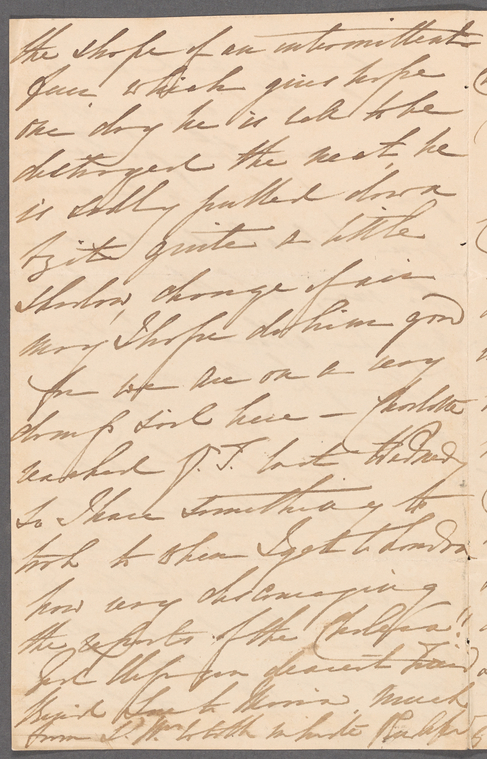 the shape of an intermittent
fever which gives hope
one day he is well to be
destroyed the next, he
is sadly pulled down
by it quite a little
shadow, change of air
may I hope do him good
for we are on a very
damp soil here — Charlotte
reached P.T. last Wednesday
so I have something to
look to when I get to London
how very discouraging
the reports of the Cholera!!
God bless you dearest Friend
Kind love to Maria, much
from